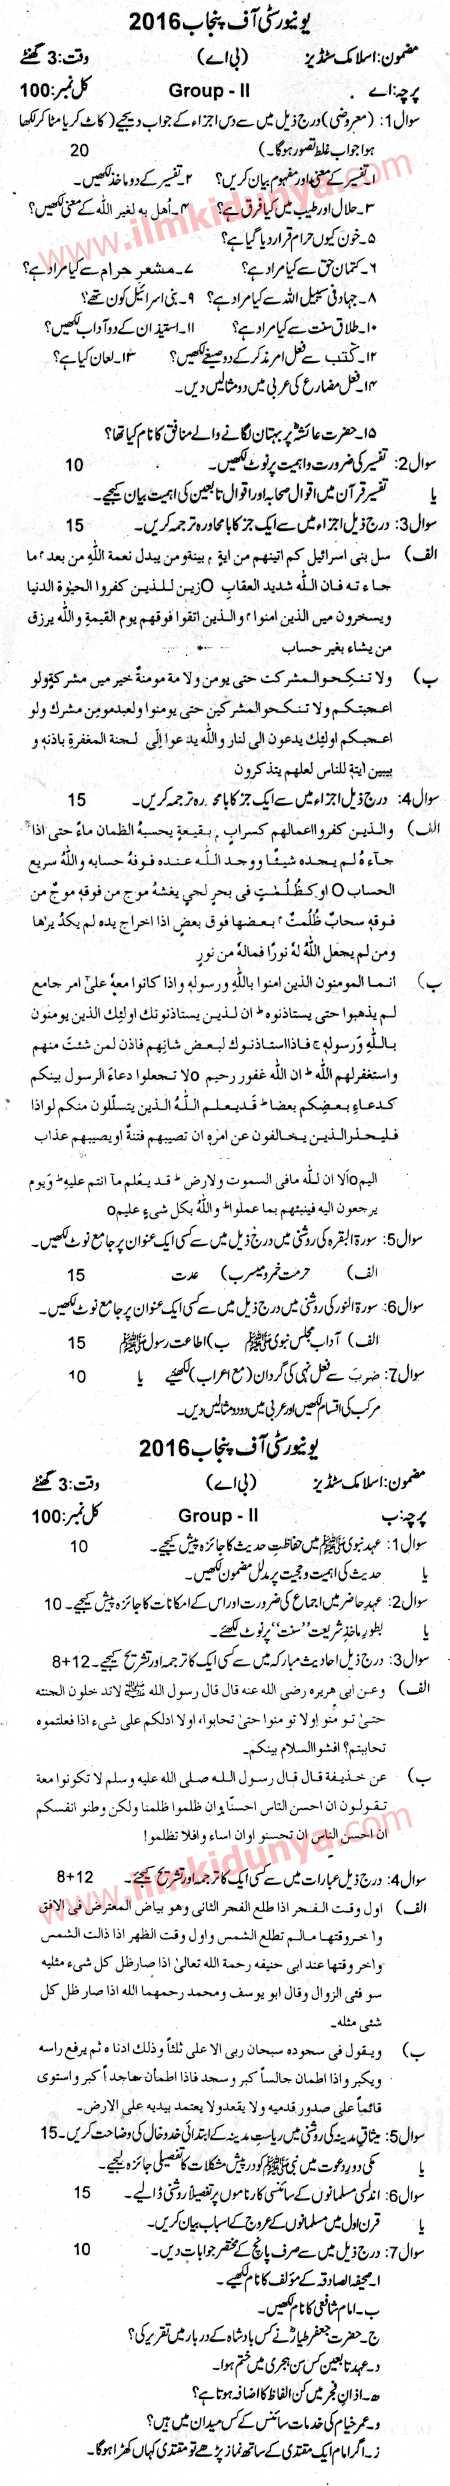 یونیورسٹی آف پنجاب 2016
مضمون: اسلامک سٹڈیز (بی اے) وقت: 3 گھنٹے
پرچہ: اے Group - II کل نمبر: 100
سوال 1: (معروضی) درج ذیل میں سے دس اجزاء کے جواب دیجیے (کاٹ کر یا مٹا کر لکھا
ہوا جواب غلط تصور ہوگا۔) 20
۱۔ تفسیر کے معنی اور مفہوم بیان کریں؟ ۲۔ تفسیر کے دو ماخذ لکھیں۔
۳۔ حلال اور طیب میں کیا فرق ہے؟ ۴۔ اُھل بہ لغیر اللہ کے معنی لکھیں؟
۵۔ خون کیوں حرام قرار دیا گیا ہے؟
۶۔ کتمان حق سے کیا مراد ہے؟ ۷۔ مشعر حرام سے کیا مراد ہے؟
۸۔ جہاد فی سبیل اللہ سے کیا مراد ہے؟ ۹۔ بنی اسرائیل کون تھے؟
۱۰۔ طلاق سنت سے کیا مراد ہے؟ ۱۱۔ استیذان کے دو آداب لکھیں؟
۱۲۔ کتب سے فعل امر مذکر کے دو صیغے لکھیں؟ ۱۳۔ لعان کیا ہے؟
۱۴۔ فعل مضارع کی عربی میں دو مثالیں دیں۔
۱۵۔ حضرت عائشہؓ پر بہتان لگانے والے منافق کا نام کیا تھا؟
سوال 2: تفسیر کی ضرورت و اہمیت پر نوٹ لکھیں۔ 10
یا تفسیر قرآن میں اقوال صحابہ اور اقوال تابعین کی اہمیت بیان کیجیے۔
سوال 3: درج ذیل اجزاء میں سے ایک جز کا بامحاورہ ترجمہ کریں۔ 15
الف) سل بنی اسرائیل کم اتینھم من ایة م بینة ومن یبدل نعمة اللہ من بعد ما
جاء تہ فان اللہ شدید العقاب O زین للذین کفروا الحیوة الدنیا
ویسخرون میں الذین امنوا والذین اتقوا فوقھم یوم القیمة واللہ یرزق
من یشاء بغیر حساب
ب) ولا تنکحوالمشرکت حتی یومن ولا مة مومنة خیر میں مشرکةٍ ولو
اعجبتکم ولا تنکحوالمشرکین حتی یومنوا ولعبدمومن مشرک ولو
اعجبکم اولئک یدعون الی لنار واللہ یدعوا اِلٰی لجنة المغفرة باذنہ و
یبیین ایتہ للناس لعلھم یتذکرون
سوال 4: درج ذیل اجزاء میں سے ایک جز کا بامحاورہ ترجمہ کریں۔ 15
الف) والذین کفروا اعمالھم کسراب م بقیعةٍ یحسبہ الظمان ماءً حتی اذا
جآءہٗ لم یجدہ شیئًا ووجد اللہ عندہ فوفہٗ حسابہ واللہ سریع
الحساب O اوکظُلُمٰتٍ فی بحر لجي یغشہُ موج من فوقہ موجٌ من
فوقہ سحابٌ ظُلُمتٌ م بعضھا فوق بعضٍ اذا اخراج یدہ لم یکدیرٰھا
ومن لم یجعل اللہُ لہٗ نورًا فمالہٗ من نورٍ
ب) انما المومنون الذین امنوا باللہِ ورسولہٖ واذا کانوا معہٗ علیٰ امر جامع
لم یذھبوا حتی یستاذنوہ ط ان لذین یستاذنوتک اولئِک الذین یومنون
باللہِ ورسولہٖ ج فاذا استاذنوک لبعض شانِھم فاذن لمن شئت منھم
واستغفرلھم اللہ ط ان اللہ غفور رحیم o لا تجعلوا دعاءَ الرسول بینکم
کدعاءِ بعضکم بعضا ط قدیعلم اللہُ الذین یتسلّلون منکم لواذا
فلیحذرالذین یخالفون عن امرہٖ ان تصیبھم فتنة اویصیبھم عذاب
الیم o اَلا ان للہ مافی السموت ولارض ط قد یعُلم ما انتم علیہ ط وَیوم
یرجعون الیہ فینبئھم بما عملوا ط واللہُ بکل شیءٍ علیم o
سوال 5: سورۃ البقرہ کی روشنی میں درج ذیل میں سے کسی ایک عنوان پر جامع نوٹ لکھیں۔
الف) حرمت خمرومیسر ب) عدت 15
سوال 6: سورۃ النور کی روشنی میں درج ذیل میں سے کسی ایک عنوان پر جامع نوٹ لکھیں۔
الف) آداب مجلس نبوی ﷺ ب) اطاعت رسول ﷺ 15
سوال 7: ضرب سے فعل نہی کی گردان (مع اعراب) لکھیئے یا 10
مرکب کی اقسام لکھیں اور عربی میں دو دو مثالیں دیں۔
یونیورسٹی آف پنجاب 2016
مضمون: اسلامک سٹڈیز (بی اے) وقت: 3 گھنٹے
پرچہ: ب Group - II کل نمبر: 100
سوال 1: عہد نبوی ﷺ میں حفاظت حدیث کا جائزہ پیش کیجیے۔ 10
یا حدیث کی اہمیت و حجیت پر مدلل مضمون لکھیں۔
سوال 2: عہد حاضر میں اجماع کی ضرورت اور اس کے امکانات کا جائزہ پیش کیجیے۔ 10
یا بطور ماخذ شریعت "سنت" پر نوٹ لکھئے۔
سوال 3: درج ذیل احادیث مبارکہ میں سے کسی ایک کا ترجمہ اور تشریح کیجیے۔ 8+12
الف) وعن ابی ھریرہ رضی اللہ عنہ قال قال رسول اللہ ﷺ لاتد خلون الجنتہ
حتیٰ تو منو اولا تو منوا حتیٰ تحابوا، اولا ادلکم علی شیء اذا فعلتموہ
تحاببتم؟ افشوا السلام بینکم۔
ب) عن حذیفة قال قال رسول اللہ صلی اللہ علیہ وسلم لا تکونوا معة
تقولون ان احسن الناس احسنّا وان ظلموا ظلمنا ولکن وطنو انفسکم
ان احسن الناس ان تحسنو اوان اساء وافلا تظلمو!
سوال 4: درج ذیل عبارات میں سے کسی ایک کا ترجمہ اور تشریح کیجیے۔ 8+12
الف) اول وقت الفجر اذا طلع الفجر الثانی وھو بیاض المعترض فی الافق
وا خروقتھا مالم تطلع الشمس واول وقت الظھر اذا ذالت الشمس
واخر وقتھا عند ابی حنیفہ رحمة اللہ تعالیٰ اذا صارظل کل شیء مثلیہ
سو فئی الزوال وقال ابو یوسف ومحمد رحمھما اللہ اذا صار ظل کل
شئی مثلہ۔
ب) ویقول فی سجودہ سبحان ربی الا علی ثلثاً وذلک ادناہ ثم یرفع راسہ
ویکبر واذا اطمان جالساً کبر و سجد فاذا اطمأن ھاجداً کبر واستوی
قائماً علی صدور قدمیہ ولا یقعدولا یعتمد بیدیہ علی الارض۔
سوال 5: میثاق مدینہ کی روشنی میں ریاست مدینہ کے ابتدائی خدوخال کی وضاحت کریں۔ 15
یا مکی دور دعوت میں نبی ﷺ کو درپیش مشکلات کا تفصیلی جائزہ لیجیے۔
سوال 6: اندلسی مسلمانوں کے سائنسی کارناموں پر تفصیلاً روشنی ڈالیے۔ 15
یا قرن اول میں مسلمانوں کے عروج کے اسباب بیان کریں۔
سوال 7: درج ذیل میں سے صرف پانچ کے مختصر جوابات دیں۔ 10
ا۔ صحیفہ الصادقہ کے مؤلف کا نام لکھیے۔
ب۔ امام شافعی کا نام لکھیں۔
ج۔ حضرت جعفر طیارؓ نے کس بادشاہ کے دربار میں تقریر کی؟
د۔ عہد تابعین کس سن ہجری میں ختم ہوا۔
ھ۔ اذان فجر میں کن الفاظ کا اضافہ ہوتا ہے؟
و۔ عمر خیام کی خدمات سائنس کے کس میدان میں ہیں؟
ز۔ اگر امام ایک مقتدی کے ساتھ نماز پڑھے تو مقتدی کہاں کھڑا ہوگا۔
www.ilmkidunya.com
www.ilmkidunya.com